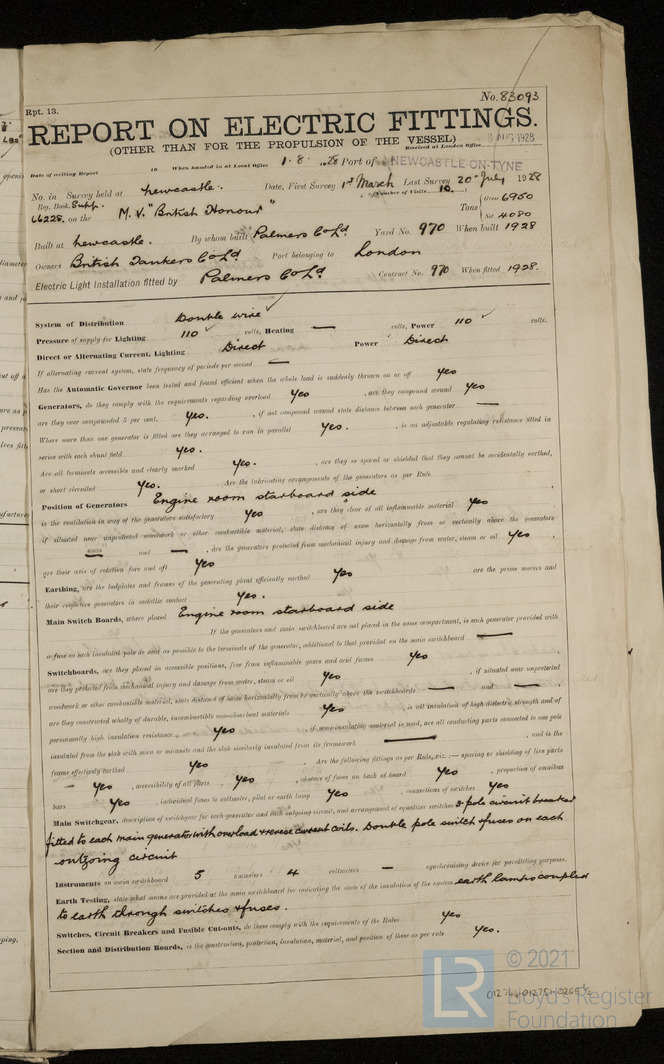 No. 83093
Rpt. 13.
REPORT ON ELECTRIC FITTINGS.
(OTHER THAN FOR THE PROPULSION OF THE VESSEL)
Received at London Office AUG 1928
Date of writing Report 19 When handed in at Local Office 1. 8. 1928 Port of NEWCASTLE-ON-TYNE
No. in Survey held at Newcastle. Date, First Survey 1st March Last Survey 20th July 1928
Reg. Book. Supp. (Number of Visits 10.)
66228. on the M.V. "British Honour" Tons { Gross 6950
Net 4080
Built at Newcastle. By whom built Palmers Co Ld Yard No. 970 When built 1928
Owners British Tankers Co Ld Port belonging to London
Electric Light Installation fitted by Palmers Co Ld Contract No. 970 When fitted 1928.
System of Distribution Double wire
Pressure of supply for Lighting 110 volts, Heating — volts, Power 110 volts.
Direct or Alternating Current, Lighting Direct Power Direct
If alternating current system, state frequency of periods per second —
Has the Automatic Governor been tested and found efficient when the whole load is suddenly thrown on or off yes
Generators, do they comply with the requirements regarding overload yes , are they compound wound yes
are they over compounded 5 per cent. yes. , if not compound wound state distance between each generator —
Where more than one generator is fitted are they arranged to run in parallel yes. , is an adjustable regulating resistance fitted in
series with each shunt field yes.
Are all terminals accessible and clearly marked yes. , are they so spaced or shielded that they cannot be accidentally earthed,
or short circuited yes. Are the lubricating arrangements of the generators as per Rule
Position of Generators Engine room starboard side
is the ventilation in way of the generators satisfactory yes , are they clear of all inflammable material yes
if situated near unprotected woodwork or other combustible material, state distance of same horizontally from or vertically above the generators
— and — , are the generators protected from mechanical injury and damage from water, steam or oil yes
are their axis of rotation fore and aft yes
Earthing, are the bedplates and frames of the generating plant efficiently earthed yes are the prime movers and
their respective generators in metallic contact yes.
Main Switch Boards, where placed Engine room starboard side
If the generators and main switchboard are not placed in the same compartment, is each generator provided with
a fuse on each insulated pole as near as possible to the terminals of the generator, additional to that provided on the main switchboard —
Switchboards, are they placed in accessible positions, free from inflammable gases and acid fumes yes
are they protected from mechanical injury and damage from water, steam or oil yes , if situated near unprotected
woodwork or other combustible material, state distance of same horizontally from or vertically above the switchboards — and —
are they constructed wholly of durable, incombustible non-absorbent materials yes , is all insulation of high dielectric strength and of
permanently high insulation resistance yes , if semi-insulating material is used, are all conducting parts connected to one pole
insulated from the slab with mica or micanite and the slab similarly insulated from its framework — , and is the
frame effectively earthed yes . Are the following fittings as per Rule, viz.:— spacing or shielding of live parts
yes , accessibility of all parts yes , absence of fuses on back of board yes , proportion of omnibus
bars yes , individual fuses to voltmeter, pilot or earth lamp yes , connections of switches yes
Main Switchgear, description of switchgear for each generator and each outgoing circuit, and arrangement of equaliser switches 3 pole circuit breaker
fitted to each main generator with overload & reverse current coils. Double pole switch & fuses on each
outgoing circuit
Instruments on main switchboard 5 ammeters 4 voltmeters — synchronising device for paralleling purposes.
Earth Testing, state what means are provided at the main switchboard for indicating the state of the insulation of the system earth lamps coupled
to earth through switches & fuses.
Switches, Circuit Breakers and Fusible Cut-outs, do these comply with the requirements of the Rules yes
Section and Distribution Boards, is the construction, protection, insulation, material, and position of these as per rule yes.
© 2021
LR
Lloyd's Register
Foundation